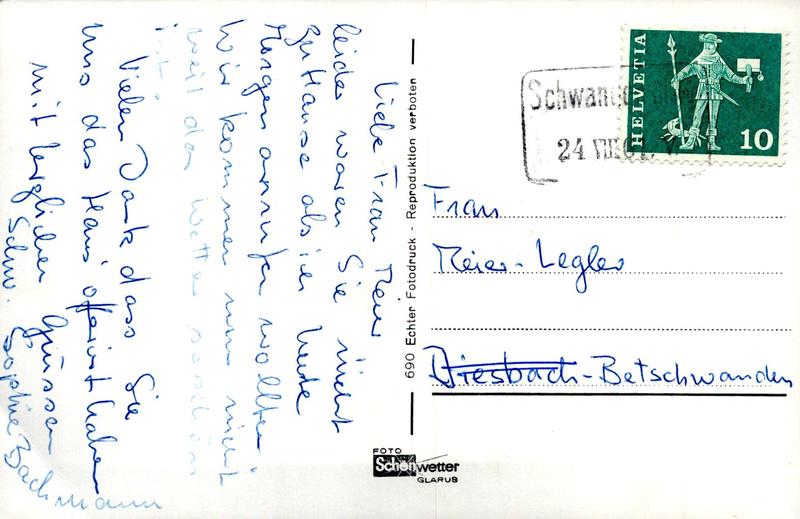 Liebe Frau Meier
leider waren Sie nicht
zu Hause als ich heute
Morgen anrufen wollte.
Wir kommen nun nicht
weil das Wetter so schön
ist.
Vielen Dank dass Sie
uns das Haus haben
mit herzlichen Grüssen
Schw. Sophie Bachmann
690 Echter Fotodruck - Reproduktion verboten
FOTO
Schönwetter
GLARUS
HELVETIA
10
24 VIII
Frau
Meier-Legler
Diesbach-Betschwanden